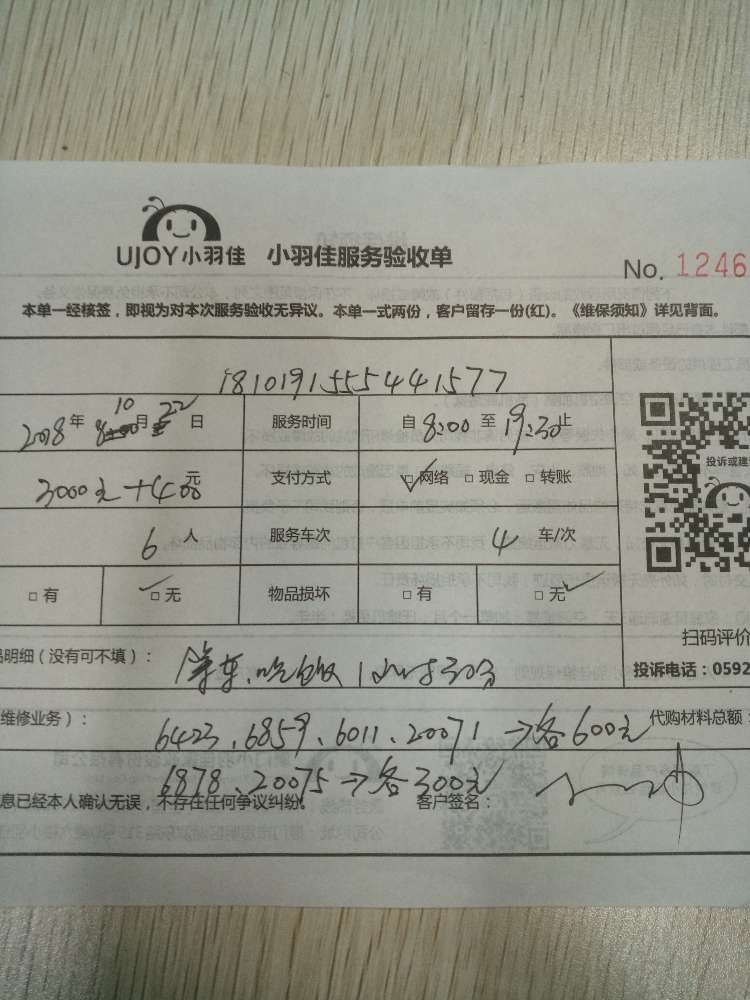 UJOY小羽佳 小羽佳服务验收单
No. 1246
本单一经核签，即视为对本次服务验收无异议。本单一式两份，客户留存一份(红)。《维保须知》详见背面。
1810191555441577
2018年 10月22日 服务时间 自8:00至19:30止
3000元+400元 支付方式 网络 现金 转账
6人 服务车次 4车/次
有 无 物品损坏 有 无
投诉或建
扫码评价
投诉电话：0592
品明细（没有可不填）： 等车、吃午饭1小时30分
维修业务）： 6423、6859、6011、20071→各600元 代购材料总额：
6878、20075→各300元
息已经本人确认无误，不存在任何争议纠纷。 客户签名：